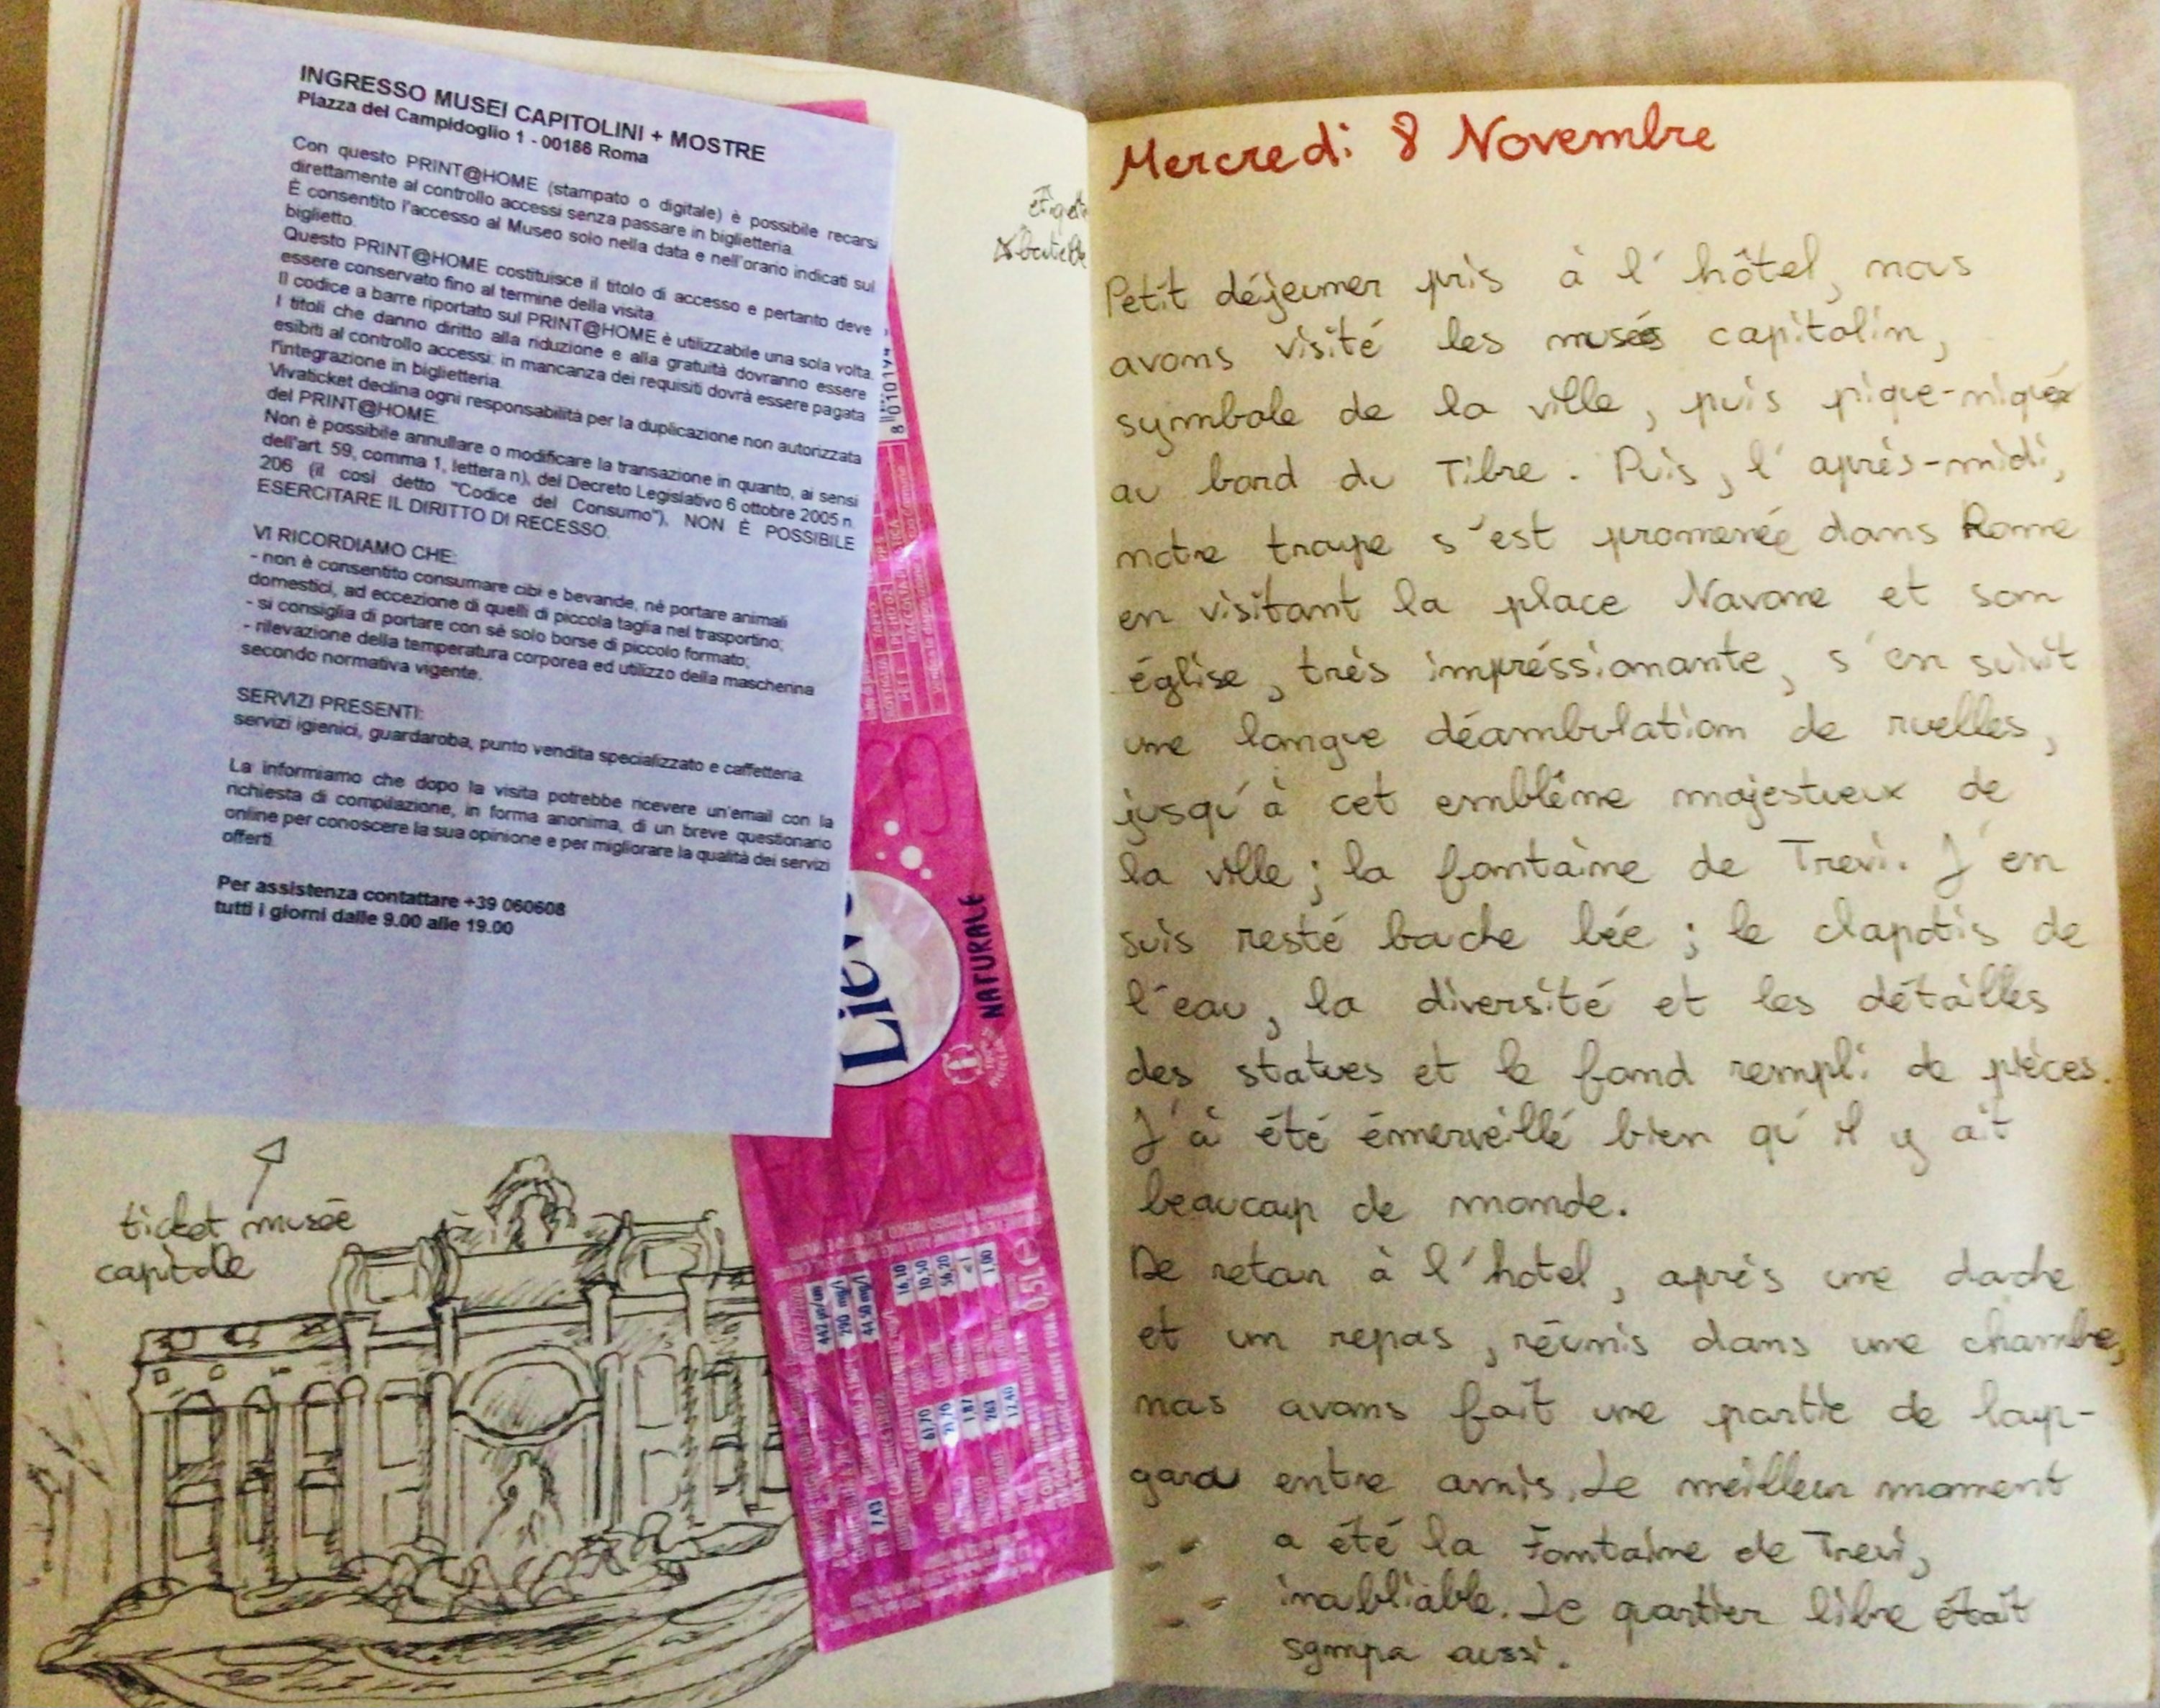 INGRESSO MUSEI CAPITOLINI + MOSTRE
Piazza del Campidoglio 1 - 00186 Roma
Con questo PRINT@HOME (stampato o digitale) è possibile recarsi
direttamente al controllo accessi senza passare in biglietteria.
È consentito l'accesso al Museo solo nella data e nell'orario indicati sul
biglietto.
Questo PRINT@HOME costituisce il titolo di accesso e pertanto deve
essere conservato fino al termine della visita.
Il codice a barre riportato sul PRINT@HOME è utilizzabile una sola volta.
I titoli che danno diritto alla riduzione e alla gratuità dovranno essere
esibiti al controllo accessi: in mancanza dei requisiti dovrà essere pagata
l'integrazione in biglietteria.
Vivaticket declina ogni responsabilità per la duplicazione non autorizzata
del PRINT@HOME.
Non è possibile annullare o modificare la transazione in quanto, ai sensi
dell'art. 59, comma 1, lettera n), del Decreto Legislativo 6 ottobre 2005 n.
206 (il così detto "Codice del Consumo"), NON È POSSIBILE
ESERCITARE IL DIRITTO DI RECESSO.
VI RICORDIAMO CHE:
- non è consentito consumare cibi e bevande, nè portare animali
domestici, ad eccezione di quelli di piccola taglia nel trasportino;
- si consiglia di portare con sè solo borse di piccolo formato;
- rilevazione della temperatura corporea ed utilizzo della mascherina
secondo normativa vigente.
SERVIZI PRESENTI:
servizi igienici, guardaroba, punto vendita specializzato e caffetteria.
La informiamo che dopo la visita potrebbe ricevere un'email con la
richiesta di compilazione, in forma anonima, di un breve questionario
online per conoscere la sua opinione e per migliorare la qualità dei servizi
offerti.
Per assistenza contattare +39 060608
tutti i giorni dalle 9.00 alle 19.00
ticket musée
capitole
NATURALE
442 µs/cm
290 mg/l
44,50 mg/l
16,10
10,50
56,20
<1
1,00
0,5L e
7,43
61,70
21,76
1,87
263
12,40
bouteille
Mercredi 8 Novembre
Petit déjeuner pris à l'hôtel, nous
avons visité les musés capitolin,
symbole de la ville, puis pique-niquer
au bord du Tibre. Puis, l'après-midi,
notre troupe s'est promenée dans Rome
en visitant la place Navone et son
église, très impréssionante, s'en suivit
une longue déambulation de ruelles,
jusqu'à cet emblême majestueux de
la ville ; la fontaine de Trevi. J'en
suis resté bouche bée ; le clapotis de
l'eau, la diversité et les détailles
des statues et le fond rempli de pièces.
J'ai été émerveillé bien qu'il y ait
beaucoup de monde.
De retour à l'hotel, après une douche
et un repas, réunis dans une chambre,
nous avons fait une partie de loup-
garou entre amis. Le meilleur moment
a été la Fontaine de Trevi,
inoubliable. Le quartier libre était
sympa aussi.